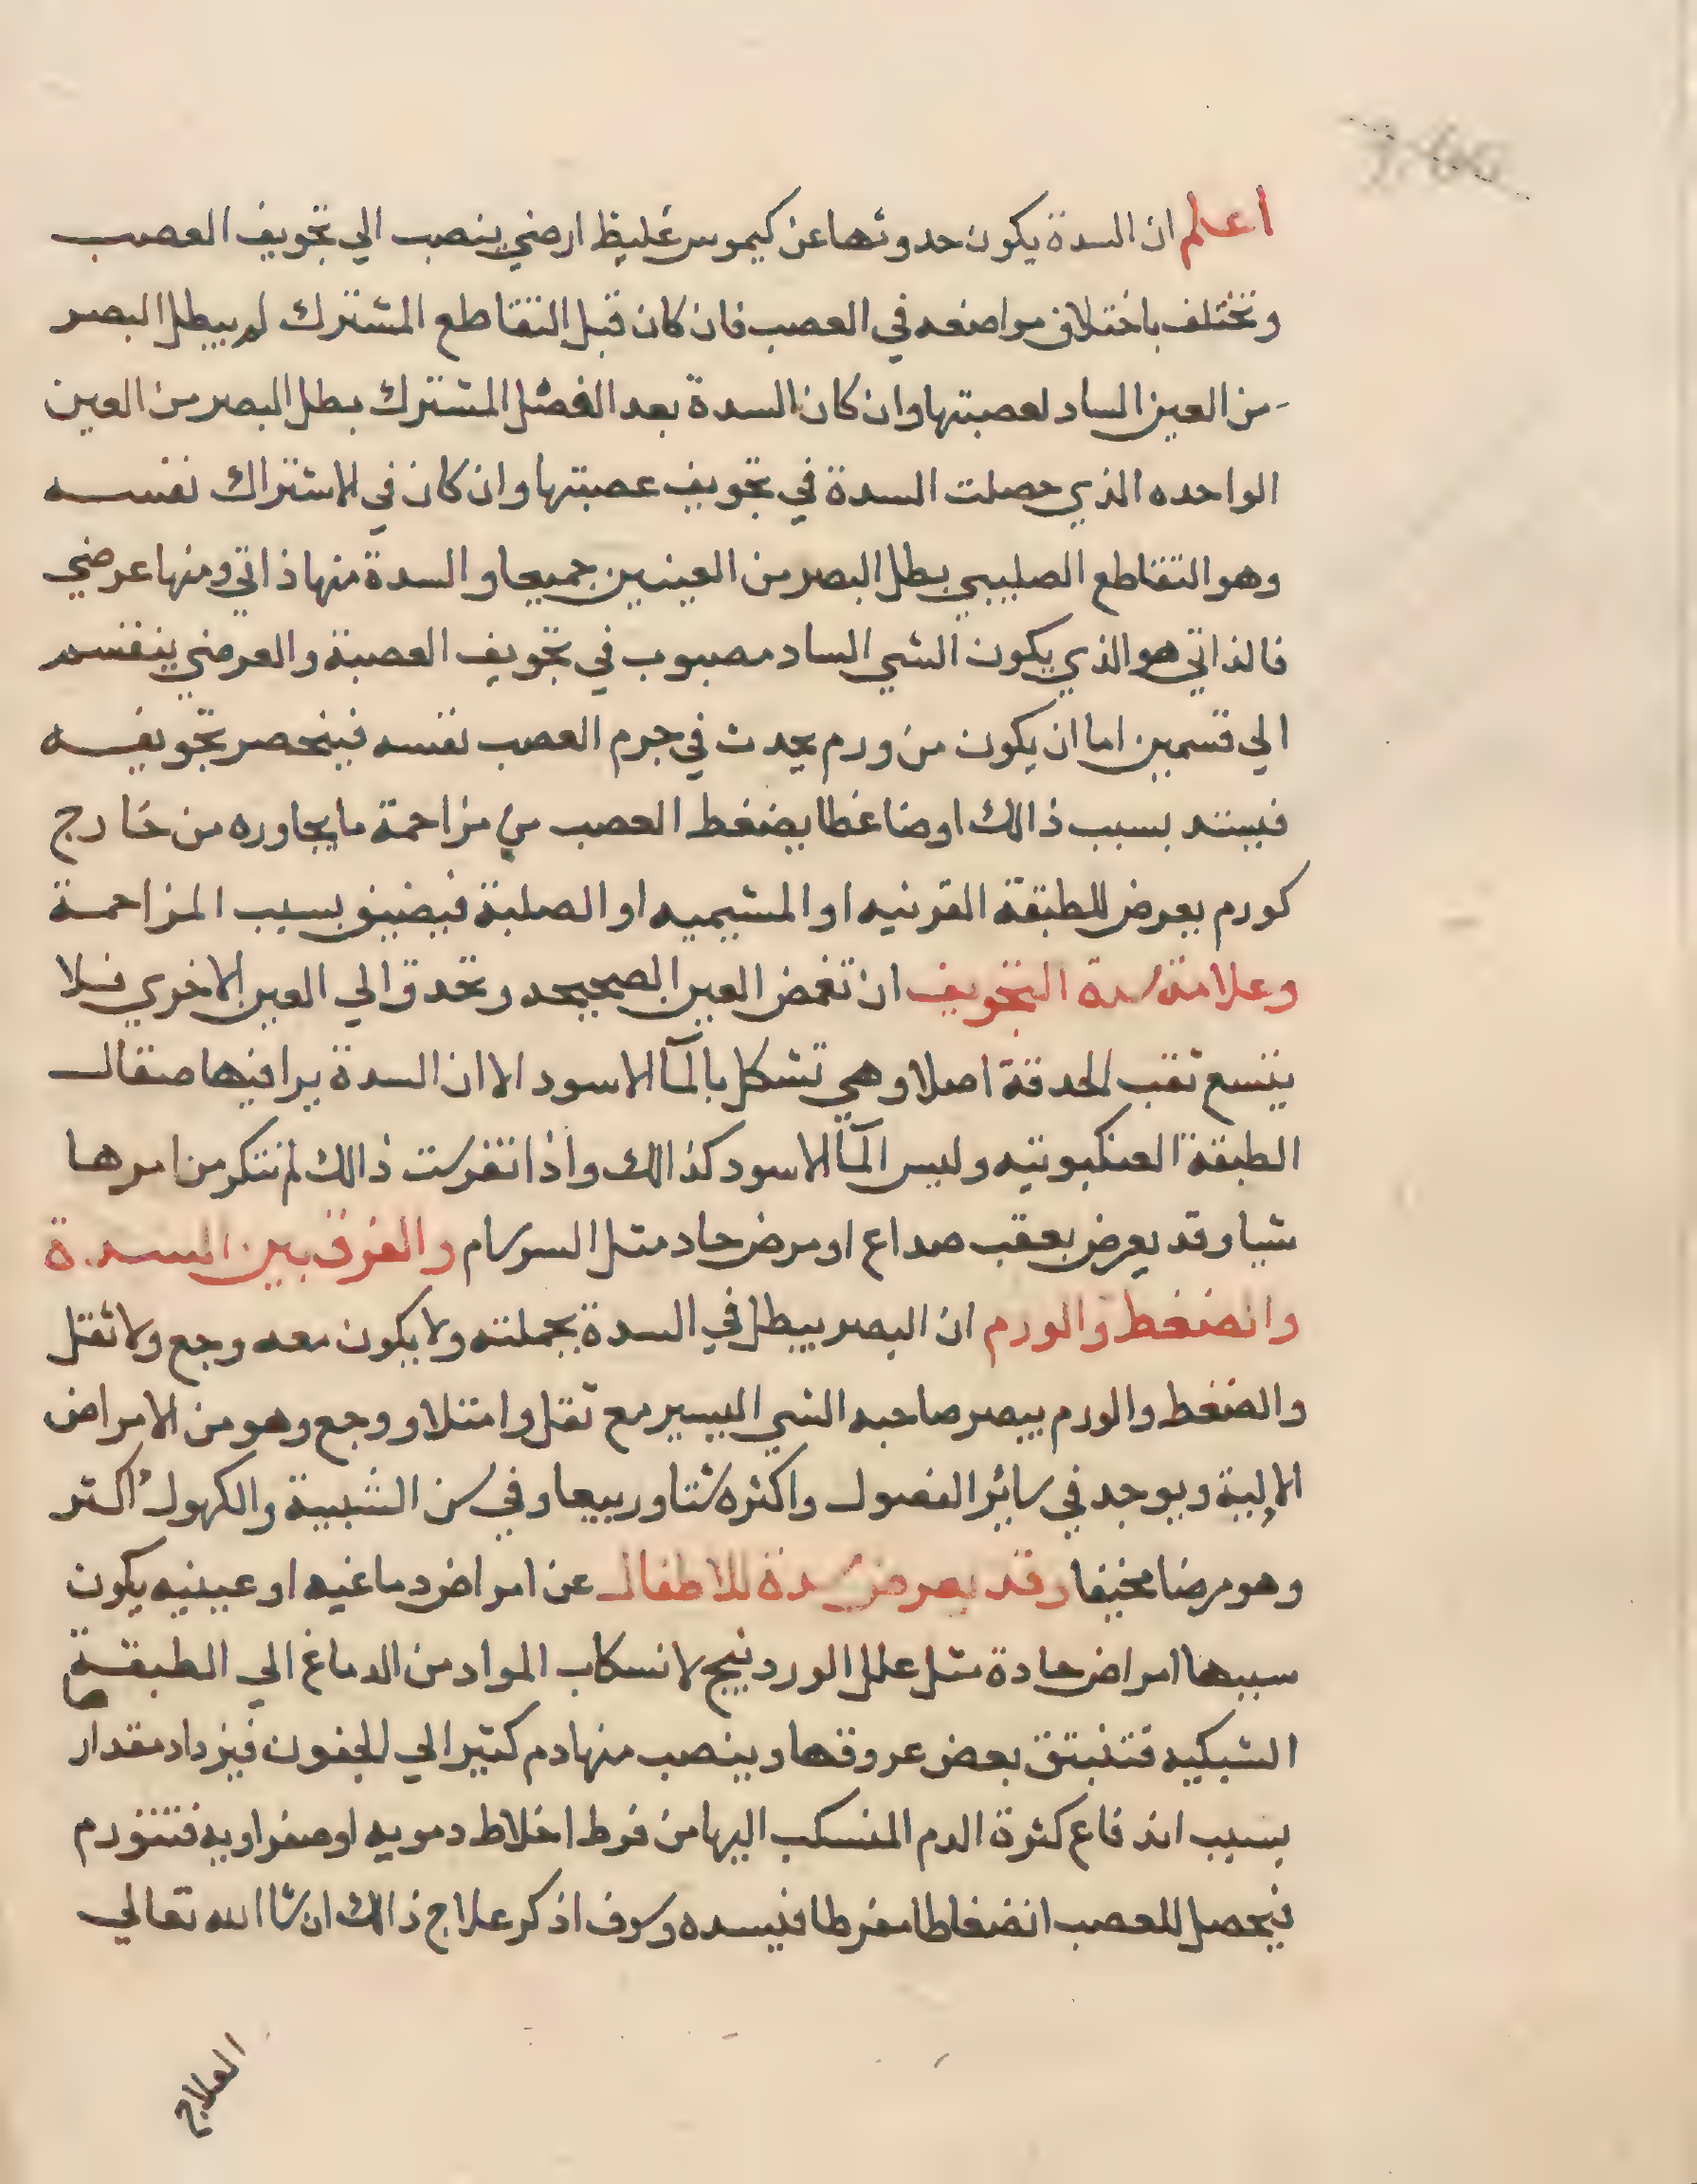 اعلم ان السدة يكون حدوثها عن كيموس غليظ ارضي ينصب الي تجويف العصب
وتختلف باختلاف مواضعه في العصب فان كان قبل التقاطع المشترك لم يبطل البصر
من العين الساد لعصبتها وان كان السدة بعد الفصل المشترك بطل البصر من العين
الواحده الذي حصلت السدة في تجويف عصبتها وان كان في الاشتراك نفسه
وهو التقاطع الصليبي بطل البصر من العينين جميعا والسدة منها ذاتي ومنها عرضي
فالذاتي هو الذي يكون الشي الساد مصبوب في تجويف العصبة والعرضي ينقسم
الي قسمين اما ان يكون من ورم يحدث في جرم العصب نفسه فينحصر تجويفه
فيستد بسبب ذالك او ضاغطا يضغط العصب من مزاحمة ما يجاوره من خارج
كورم يعرض للطبقة القرنيه او المشيميه او الصلبة فيضيق بسبب المزاحمة
وعلامة سدة التجويف ان تغمض العين الصحيحه وتحدق الي العين الاخري فلا
يتسع ثقب الحدقة اصلا وهي تشكل بالمآ الاسود الا ان السدة يرا فيها صقال
الطبقة العنكبوتيه وليس المآ الاسود كذالك واذا تفرست ذالك لم تنكر من امرها
شيا وقد يعرض بعقب صداع او مرض حاد مثل السرسام والفرق بين السدة
والضغط والورم ان البصر يبطل في السدة بجملته ولا يكون معه وجع ولا ثقل
والضغط والورم يبصر صاحبه الشي اليسير مع ثقل وامتلا ووجع وهو من الامراض
الالية ويوجد في سائر الفصول واكثره شتا وربيعا وفي سن الشبيبة والكهول اكثر
وهو مرضا مخيفا وقد يعرض سدة للاطفال عن امراض دماغيه او عينيه يكون
سببها امراض حادة مثل علل الوردنيج لانسكاب المواد من الدماغ الي الطبقة
الشبكيه فتنبثق بعض عروقها وينصب منها دم كثير الي الجفون فيزداد مقدار
بسبب اندفاع كثرة الدم المنسكب اليها من فرط اخلاط دمويه او صفراويه فتتورم
فيحصل للعصب انضغاطا مفرطا فيسده وسوف اذكر علاج ذالك ان شا الله تعالي
العلاج